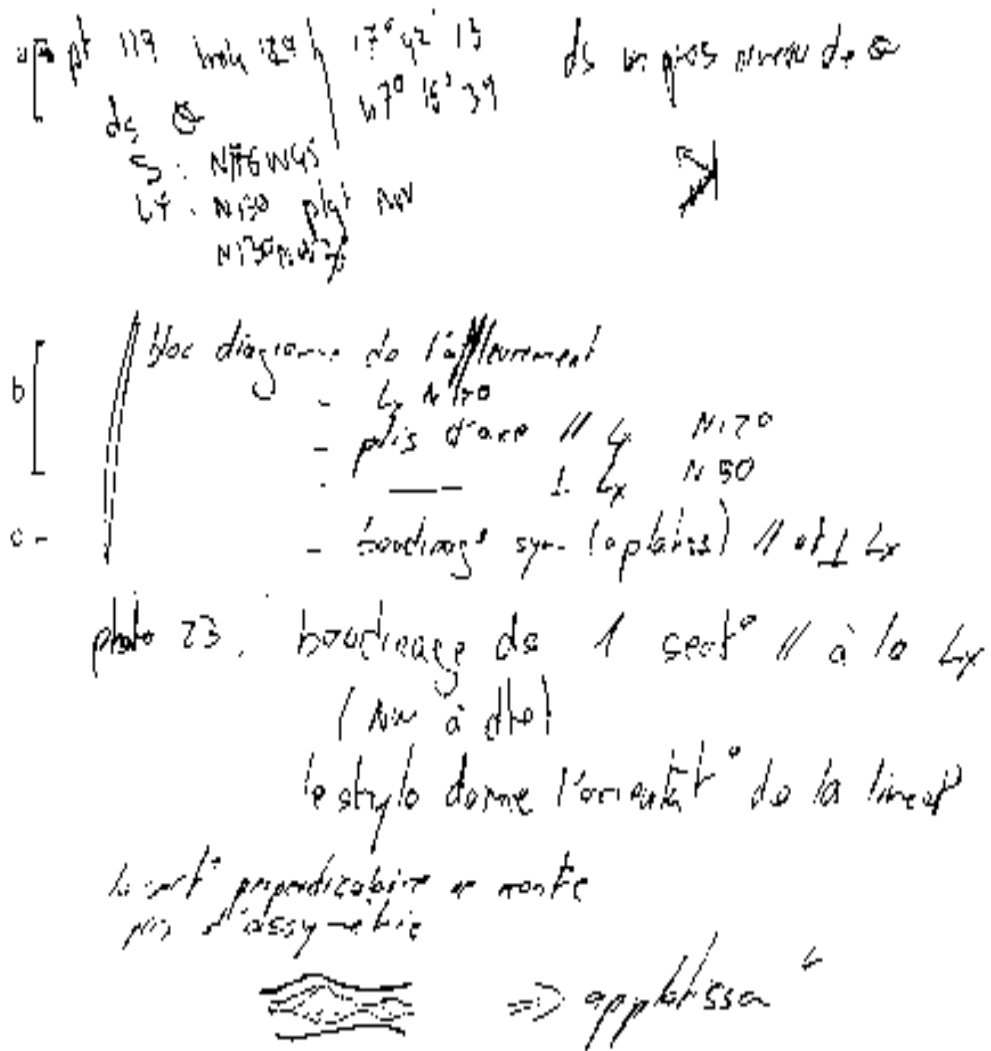 a pt 119 17° 42' 13 ds un gros niveau de
47° 16' 39
ds
S :
Lx : N130 plgt NW
b bloc diagramme de l'affleurement
- Lx N170
- plis d'axe // Lx N170
- —— ⊥ Lx N 50
c - - boudinage sym (aplatis) // et ⊥ Lx
photo 23. boudinage de 1 sect° // à la Lx
(NW à dte)
le stylo donne l'orientat° de la lineat°
la sect° perpendiculaire ne montre
pas d'assymétrie
=> applatissa^t